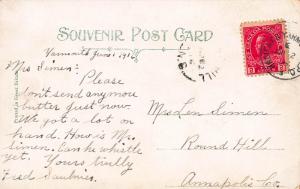 SOUVENIR POST CARD
Yarmouth June 1 191
Mrs Simen:
Please
Don't send anymore
butter just now.
We got a lot on
hand. How is Mr.
Simen. Can he whistle
yet. Yours truly
Fred Saulnier.
Mrs Len Simen
Round Hill
Annapolis Co.
HILL
N.S.